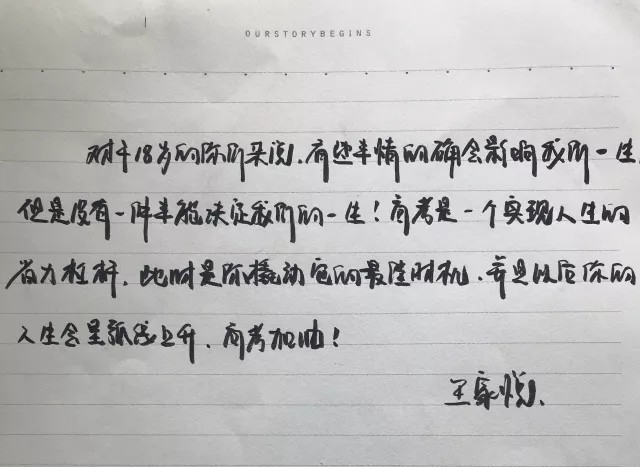 OURSTORYBEGINS
对于18岁的你们来说，有些事情的确会影响我们一生，
但是没有一件事能决定我们的一生！高考是一个实现人生的
省力杠杆，此时是你撬动它的最佳时机，并且以后你的
人生会呈弧线上升，高考加油！
王家悦